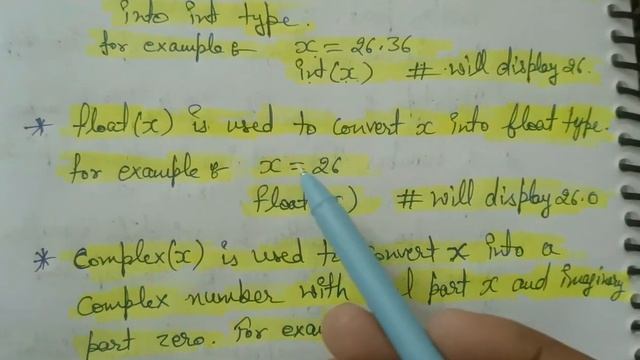 into int type.
for example :- x = 26.36
int(x) # will display 26.
* float(x) is used to convert x into float type.
for example :- x = 26
float( ) # will display 26.0
* Complex(x) is used to convert x into a
Complex number with part x and imaginary
part zero. For